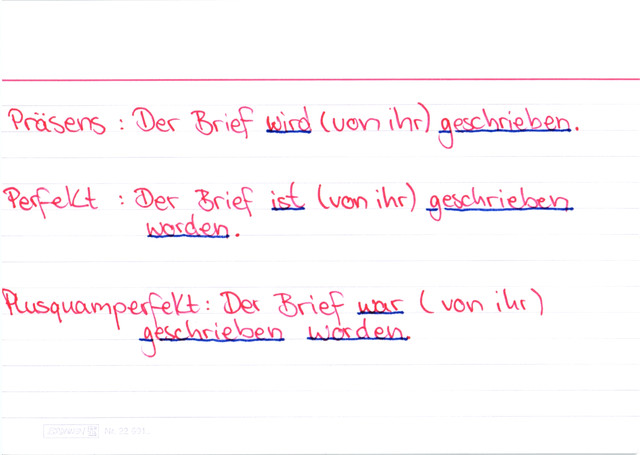 Präsens : Der Brief wird (von ihr) geschrieben.
Perfekt : Der Brief ist (von ihr) geschrieben
worden.
Plusquamperfekt: Der Brief war (von ihr)
geschrieben worden.